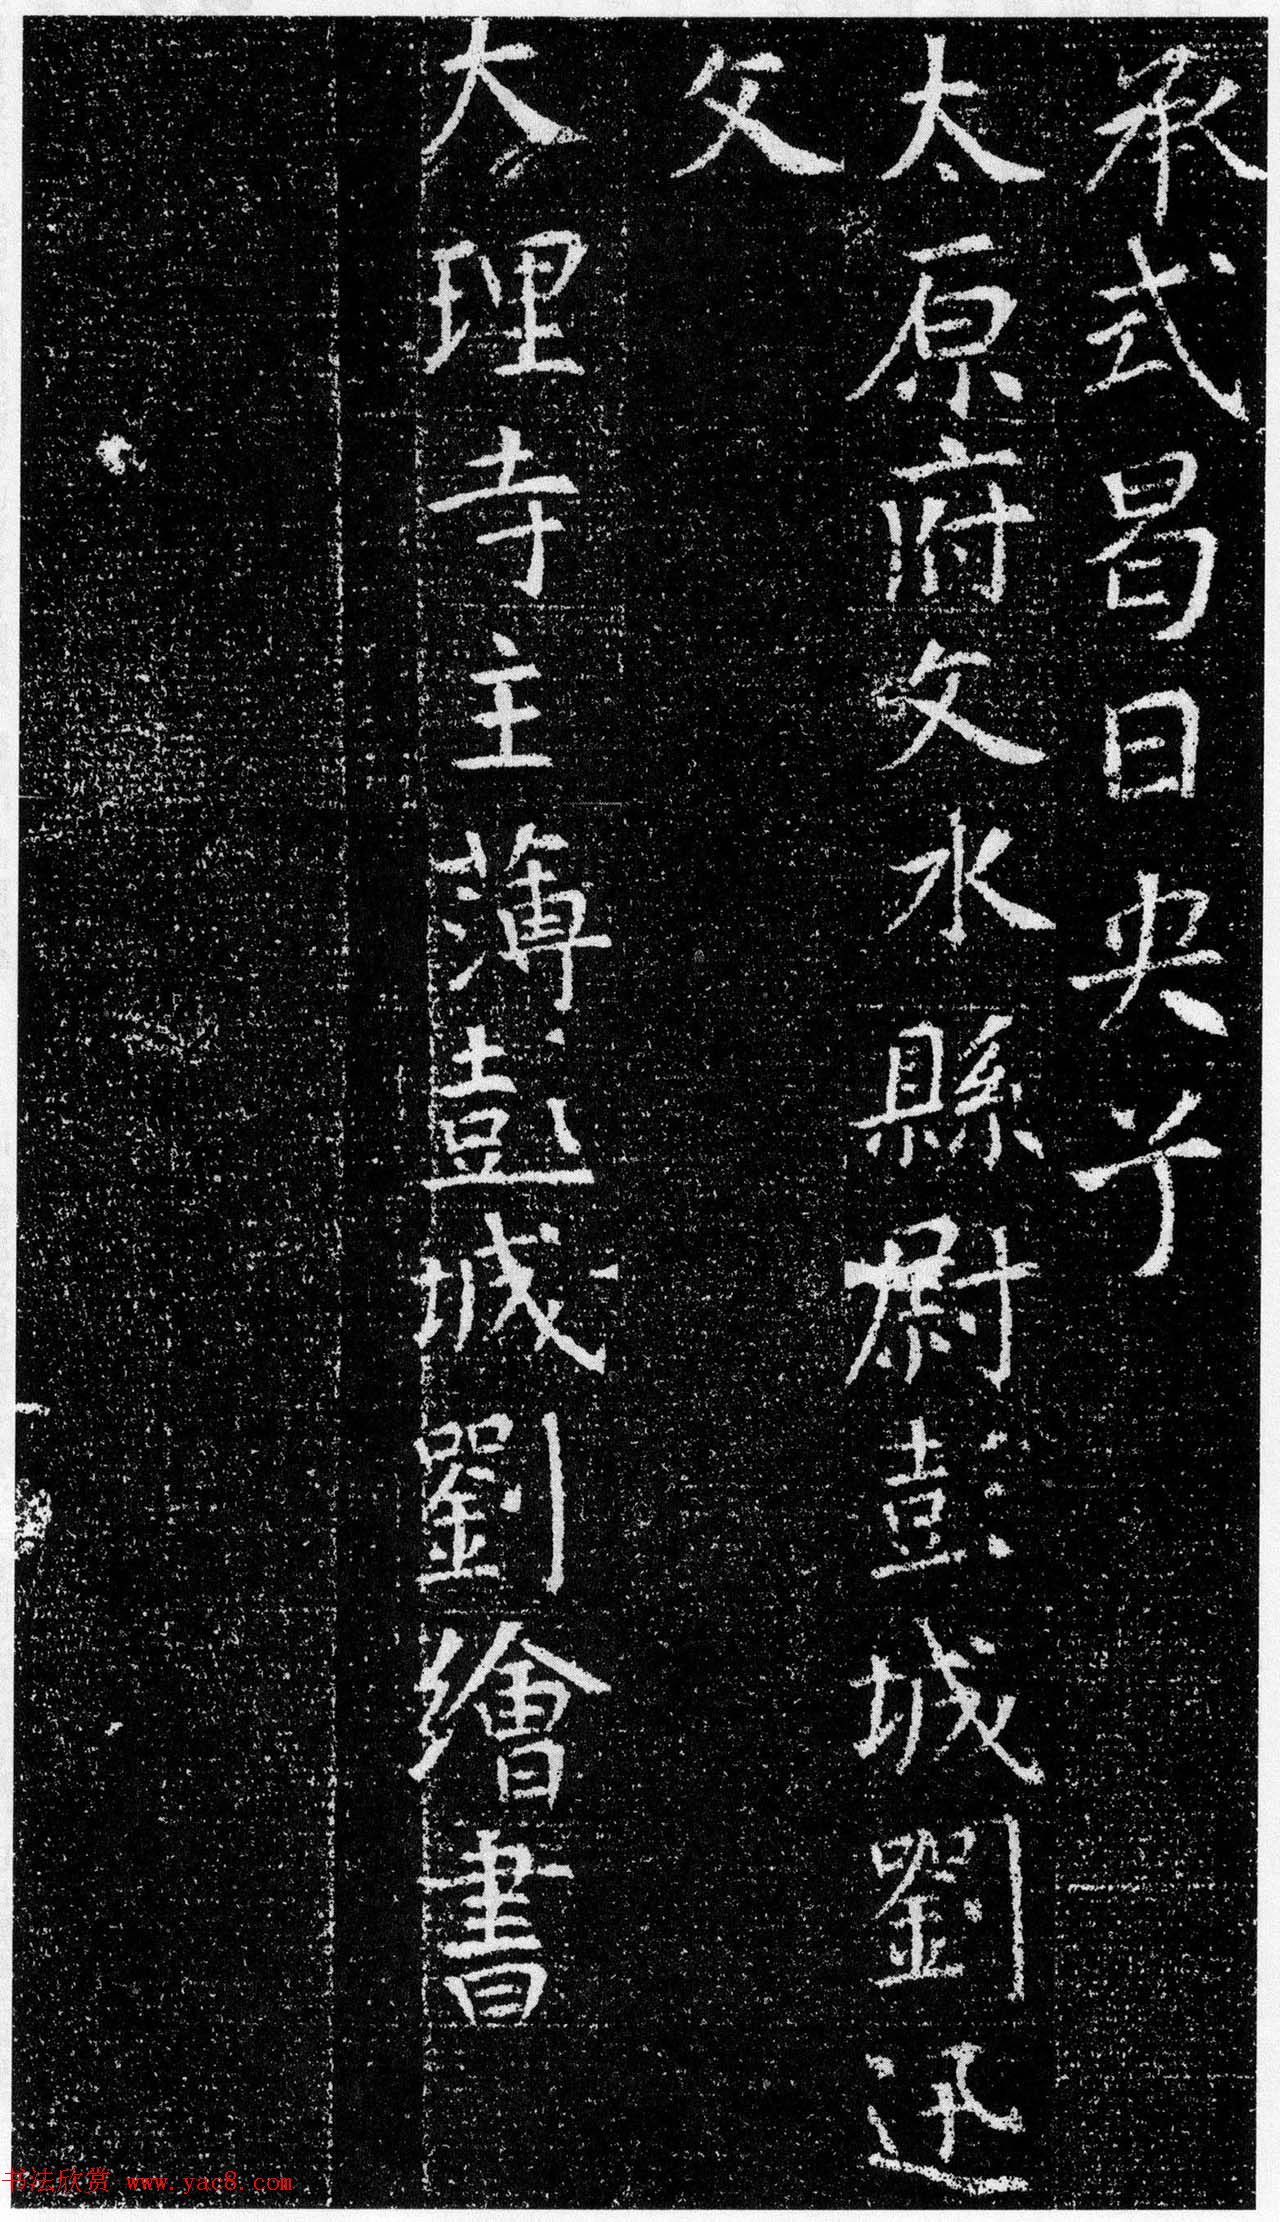 承式昌日央兮
太原府文水縣尉彭城劉迅
文
大理寺主薄彭城劉繪書
书法欣赏 www.yac8.com